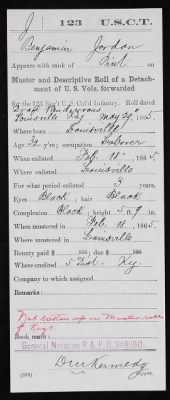 J 123 U.S.C.T.
Benjamin Jordan
Appears with rank of Pvt on
Muster and Descriptive Roll of a Detach-
ment of U. S. Vols. forwarded
for the 123 Reg't U.S. Col'd Infantry. Roll dated
Draft Rendezvous
Louisville Ky May 29, 1865.
Where born Louisville
Age 32 y'rs; occupation Laborer
When enlisted Feb. 18, 1865.
Where enlisted Louisville
For what period enlisted 3 years.
Eyes Black; hair Black
Complexion Black; height 5 ft. 9 in.
When mustered in Feb. 18, 1865.
Where mustered in Louisville
Bounty paid $ 100; due $ 100
Where credited 5 Dist. Ky.
Company to which assigned
Remarks:
Not taken up on Muster rolls
of Regt.
Book mark:
General Notation R & P
(339) Copyist.